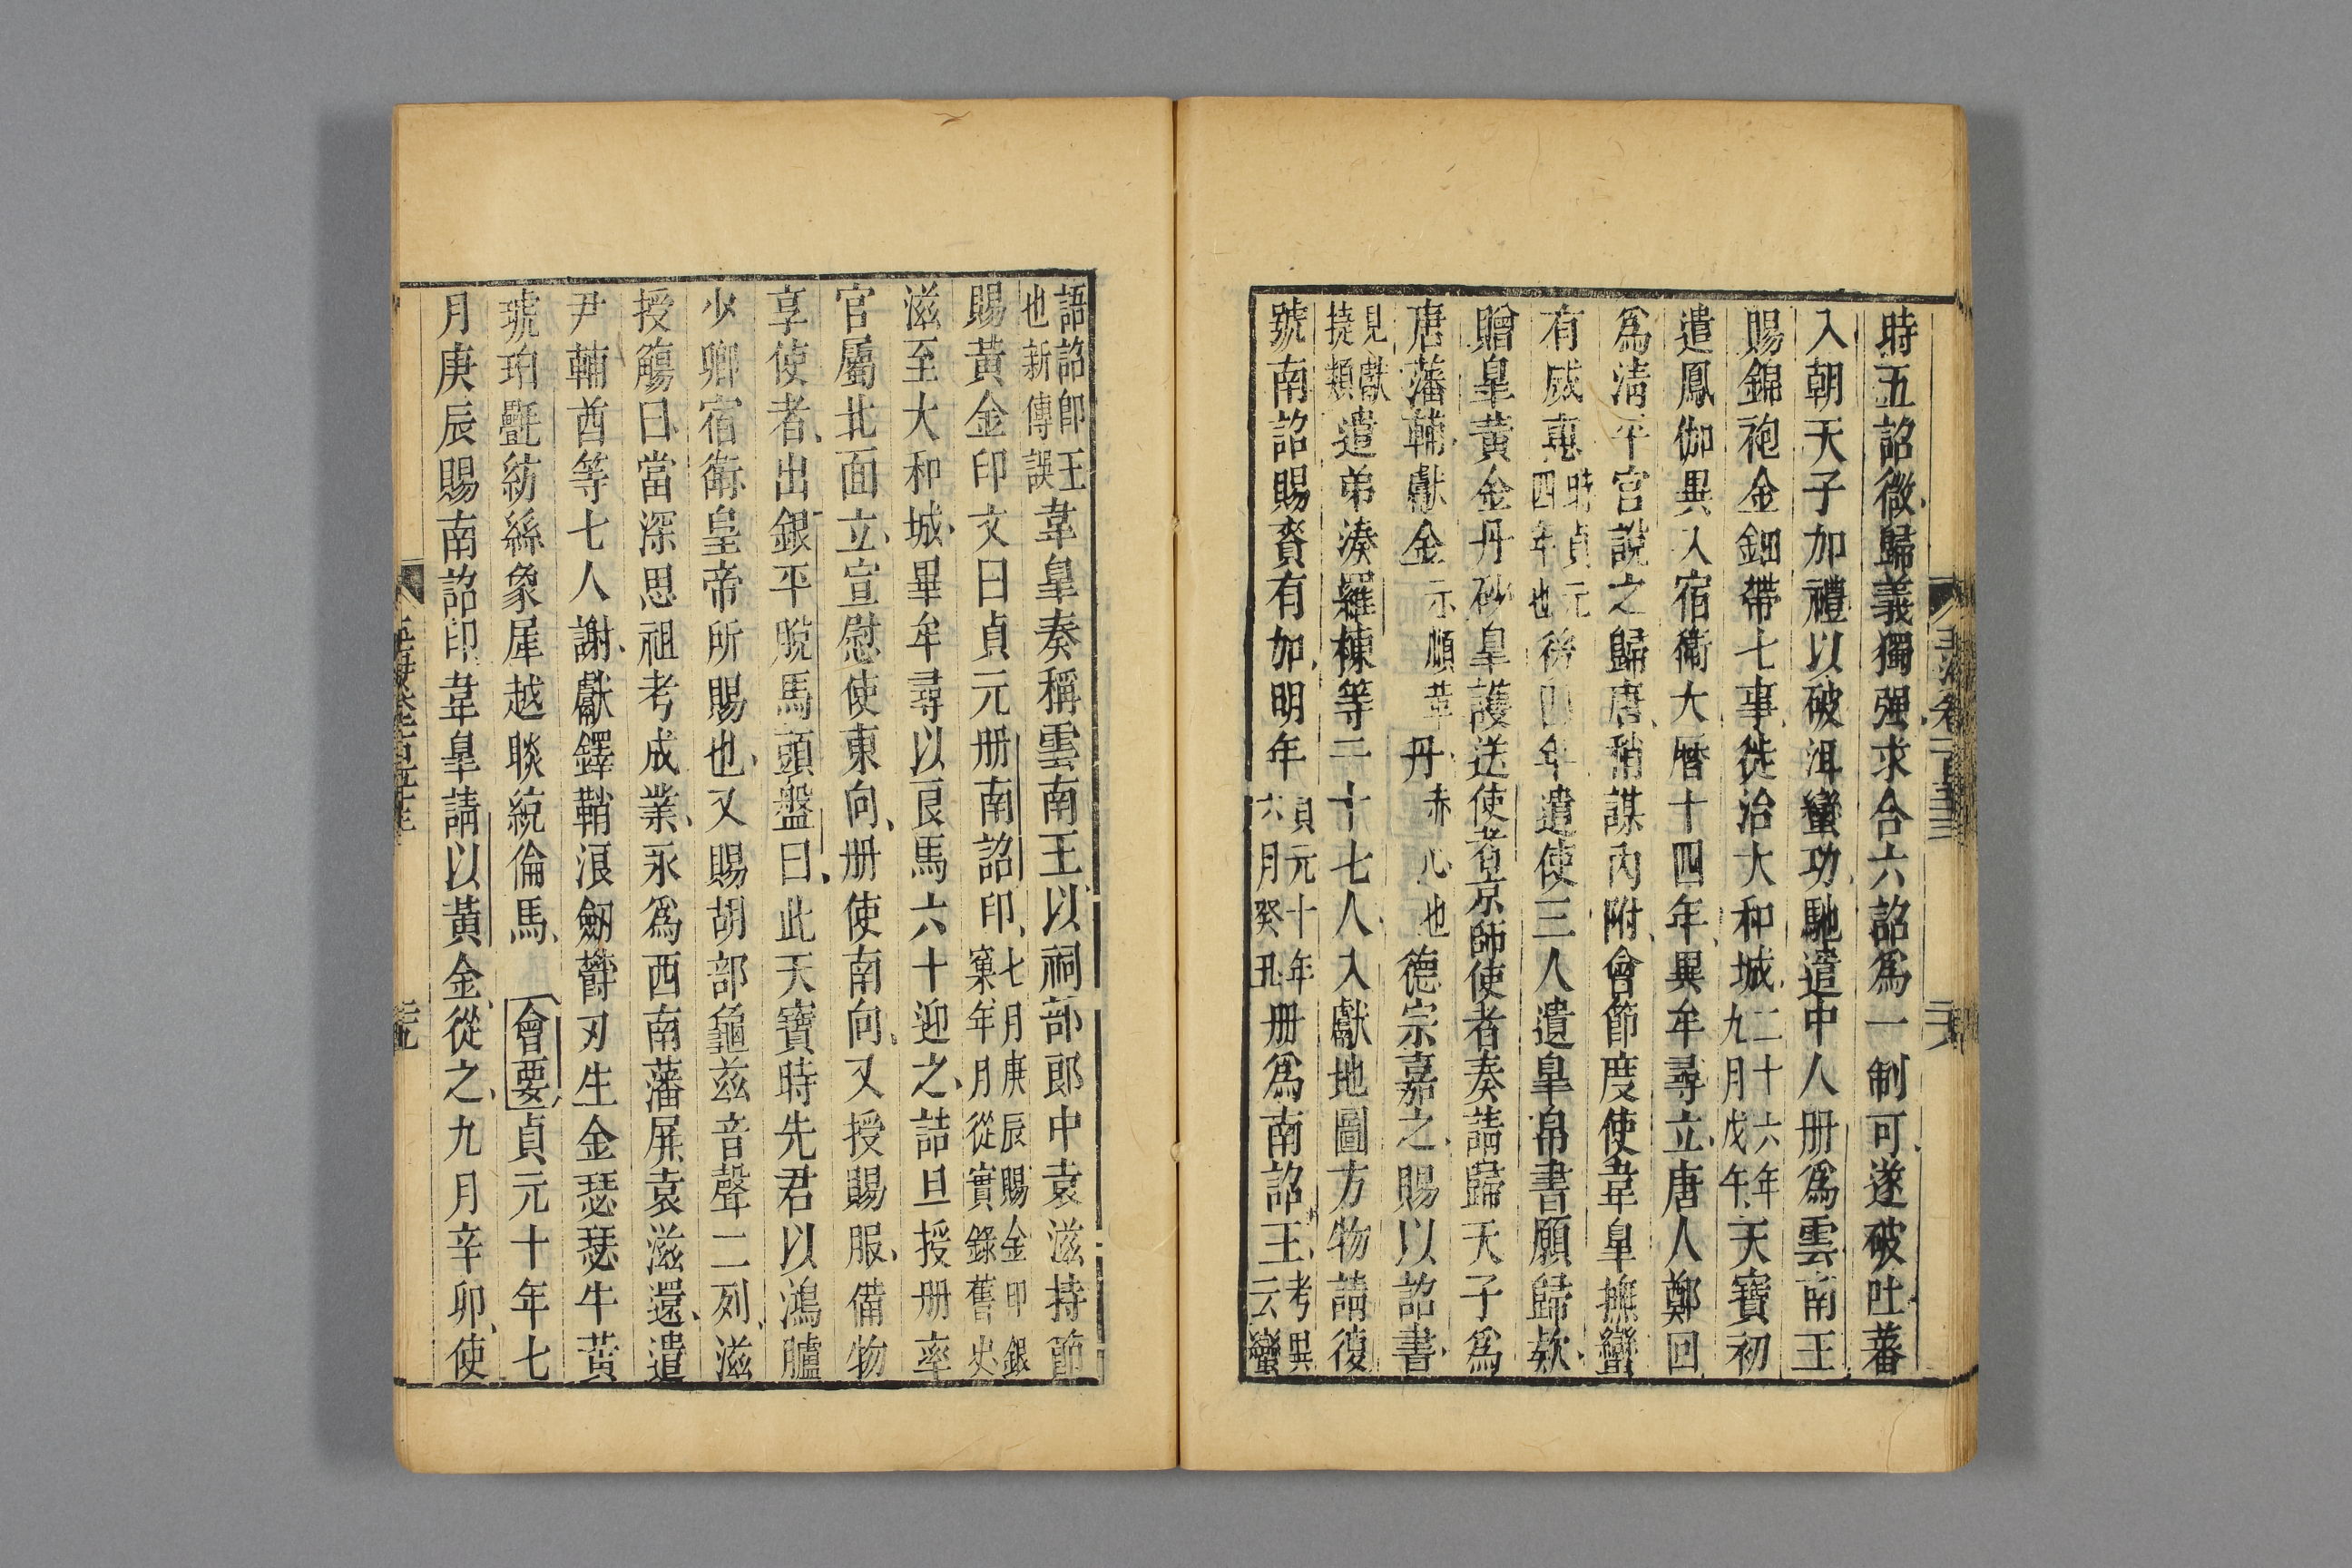 時五詔微歸義獨强求合六詔爲一制可遂破吐蕃
入朝天子加禮以破洱蠻功馳遣中人册爲雲南王
賜錦袍金鈿帶七事徙治大和城二十六年九月戊午天寶初
遣鳳伽異入宿衛大曆十四年異牟尋立唐人鄭回
爲淸平官說之歸唐稍謀內附會節度使韋臯撫蠻
有威惠時貞元四年也後四年遣使三人遺臯帛書願歸欵
贈臯黃金丹砂臯護送使者京師使者奏請歸天子爲
唐藩輔獻金示順革丹赤心也德宗嘉之賜以詔書
見獻捷類遣弟湊羅棟等二十七人入獻地圖方物請復
號南詔賜賚有加明年貞元十年六月癸丑册爲南詔王考異云蠻
語詔卽王也新傳誤韋臯奏稱雲南王以祠部郎中袁滋持節
賜黃金印文曰貞元册南詔印七月庚辰賜金印銀窠年月從實錄舊史
滋至大和城異牟尋以良馬六十迎之詰旦授册率
官屬北面立宣慰使東向册使南向又授賜服備物
享使者出銀平脫馬頭盤曰此天寶時先君以鴻臚
少卿宿衛皇帝所賜也又賜胡部龜兹音聲二列滋
授觴曰當深思祖考成業永爲西南藩屏袁滋還遣
尹輔酋等七人謝獻鐸鞘浪劒鬱刃生金瑟瑟牛黃
琥珀㲲紡絲象犀越睒統倫馬會要貞元十年七
月庚辰賜南詔印韋臯請以黃金從之九月辛卯使